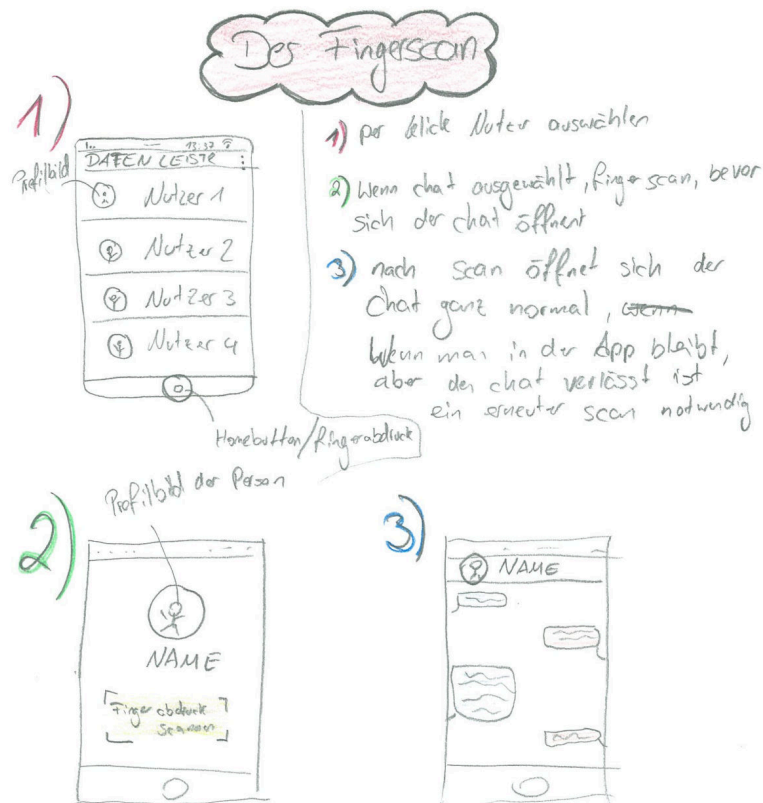 Der Fingerscan
1)
13:37
DATENLEISTE
Profilbild
Nutzer 1
Nutzer 2
Nutzer 3
Nutzer 4
Homebutton/Fingerabdruck
1) per klick Nutzer auswählen
2) Wenn chat ausgewählt, fingerscan, bevor
sich der chat öffnent
3) nach scan öffnet sich der
Chat ganz normal, wenn
Wenn man in der App bleibt,
aber den chat verlässt ist
ein erneuter scan notwendig
2)
Profilbild der Person
NAME
Fingerabdruck
scannen
3)
NAME